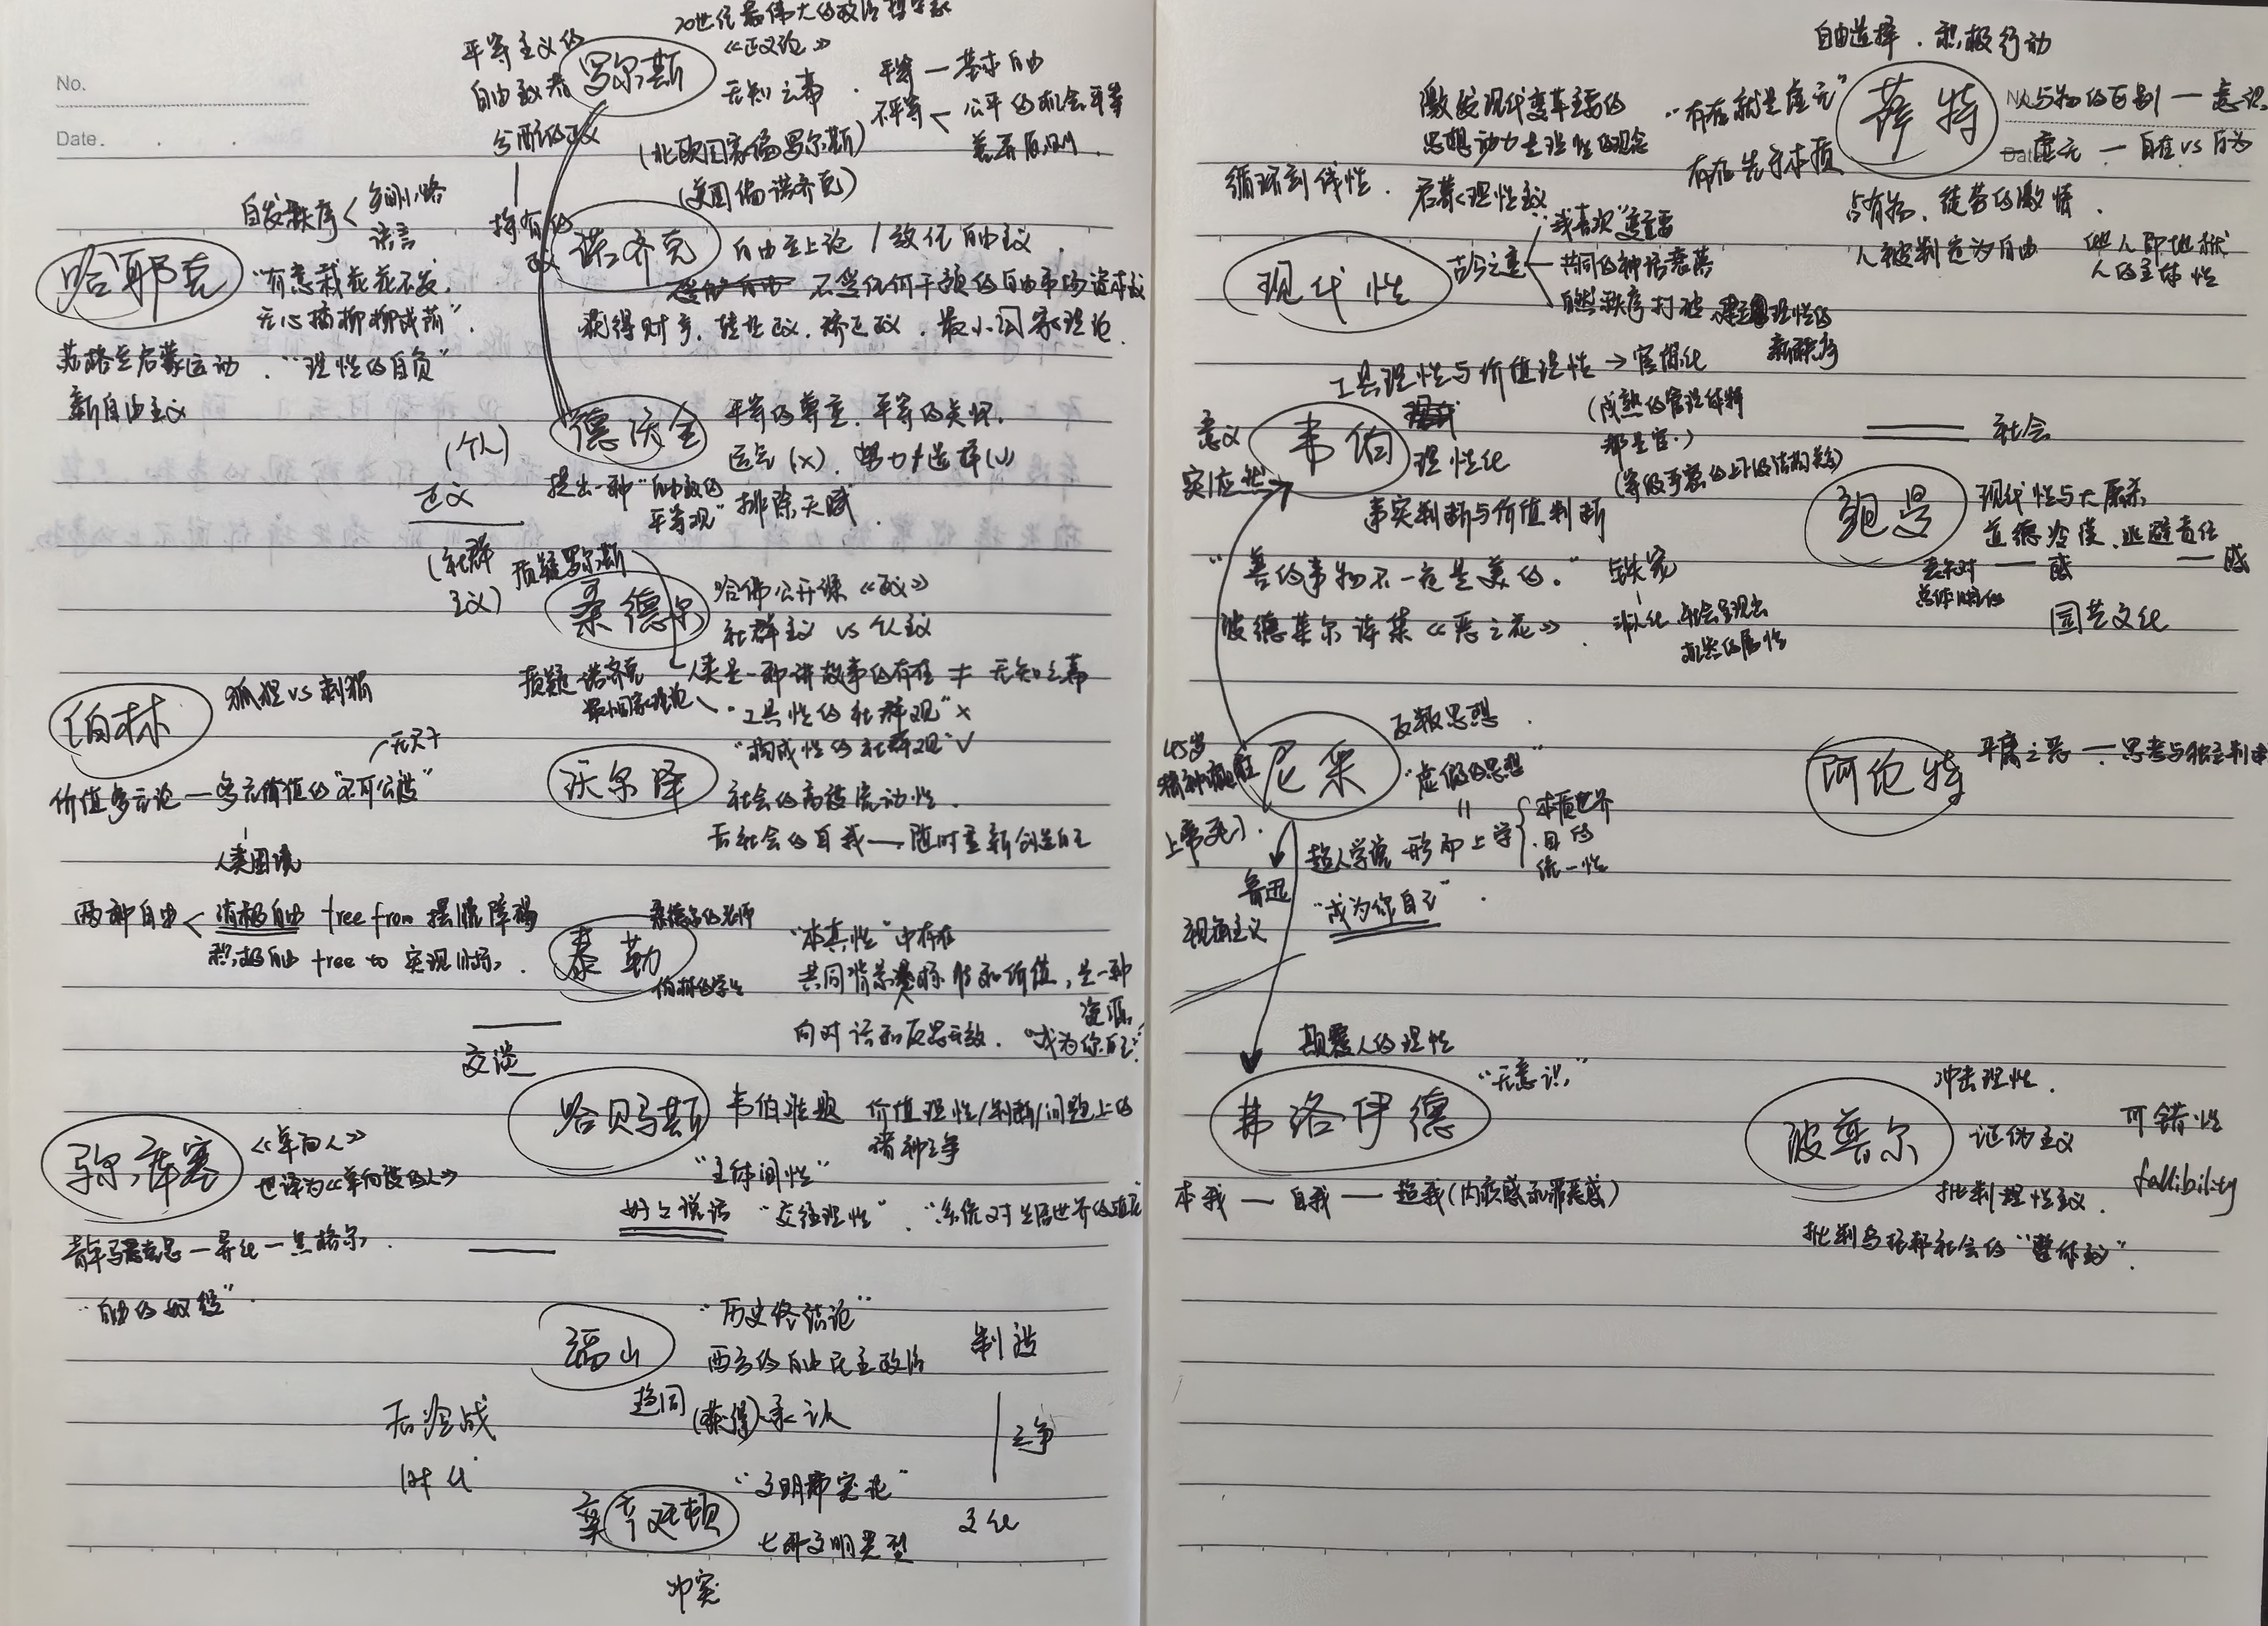 No.
Date.
20世纪最伟大的政治哲学家
平等主义的
自由主义者
分配正义
罗尔斯
《正义论》
无知之幕
平等—基本自由
不平等<公平的机会平等
差异原则
(北欧国家偏罗尔斯)
(美国偏诺齐克)
自发秩序<
语言
哈耶克
"有意栽花花不发,
无心插柳柳成荫".
苏格兰启蒙运动. "理性的自负"
新自由主义
持有的
正义
诺齐克
自由至上论/放任自由主义.
不受任何干预的自由市场资本主义
获得财产,转让正义,矫正正义.最小国家理论.
德沃金
平等的尊重,平等的关怀.
运气(×).努力+选择(√)
提出一种"自由主义的
平等观"
排除天赋.
(个人)
正义
(社群
主义)
质疑罗尔斯
桑德尔
哈佛公开课《正义》
社群主义 vs 个人主义
人类是一种讲故事的存在 ≠ 无知之幕
质疑诺齐克
最小国家理论
"工具性的社群观"×
"构成性的社群观"√
伯林
狐狸vs刺猬
价值多元论—多元价值的"不可公度"
无尺子
人类困境
两种自由<消极自由 free from 摆脱障碍
积极自由 free to 实现目标.
沃尔泽
社会的高度流动性.
后社会的自我—随时重新创造自己
泰勒
桑德尔的老师
伯林的学生
"本真性"中存在
共同背景 和价值,是一种
资源,
向对话和反思开放. "成为你自己"
交谈
哈贝马斯
韦伯难题 价值理性/判断/问题上的
诸神之争
"主体间性"
好好说话 "交往理性". "系统对生活世界的殖民"
弥尔库塞
《单向人》
也译为《单向度的人》
青年马克思—异化—黑格尔.
"自由的奴役".
福山
"历史终结论"
西方的自由民主政治
趋同 (获得)承认
制造
之争
文化
后冷战
时代
亨廷顿
"文明冲突论"
七种文明类型
冲突
自由选择.积极行动
萨特
"存在就是虚无"
存在先于本质
人与物的区别—意识
虚无—自在vs自为
占有物,徒劳的激情.
人被判定为自由
他人即地狱
人的主体性
激发现代变革主要的
思想动力是理性的观念
循环到线性.
启蒙<理性主义
现代性
古今之变
"我喜欢"变重要
共同的神话衰落
自然秩序打破,建立理性的
新秩序
工具理性与价值理性→官僚化
(成熟的管理体制
都是官.)
意义
实|应然
韦伯
理性化
事实判断与价值判断
"善的事物不一定是美的."
波德莱尔诗集《恶之花》.
铁笼
非人化,社会呈现出
机器的属性
社会
鲍曼
现代性与大屠杀
道德冷漠,逃避责任
园艺文化
尼采
反叛思想.
45岁
上帝死了.
"虚假的思想"
形而上学
本质世界
目的
统一性
超人学说
鲁迅
"成为你自己".
视角主义
阿伦特
平庸之恶—思考与独立判断
颠覆人的理性
弗洛伊德
"无意识"
本我—自我—超我(内疚感和罪恶感)
波普尔
冲击理性.
证伪主义
批判理性主义.
可错性
fallibility
批判乌托邦社会的"整体主义".